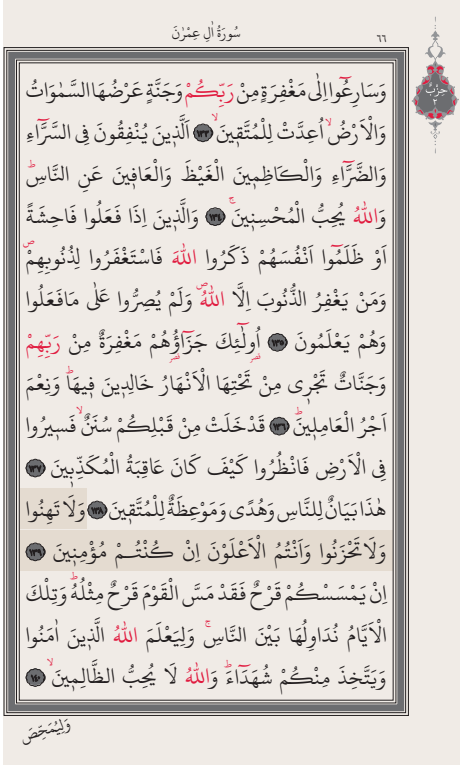 سُورَةُ اٰلِ عِمْرٰنَ
٦٦
حِزْبْ
٢
وَسَارِعُٓوا اِلٰى مَغْفِرَةٍ مِنْ رَبِّكُمْ وَجَنَّةٍ عَرْضُهَا السَّمٰوَاتُ
وَالْاَرْضُۙ اُعِدَّتْ لِلْمُتَّق۪ينَۙ ﴿١٣٣﴾ اَلَّذ۪ينَ يُنْفِقُونَ فِى السَّرَّٓاءِ
وَالضَّرَّٓاءِ وَالْكَاظِم۪ينَ الْغَيْظَ وَالْعَاف۪ينَ عَنِ النَّاسِۜ
وَاللّٰهُ يُحِبُّ الْمُحْسِن۪ينَۚ ﴿١٣٤﴾ وَالَّذ۪ينَ اِذَا فَعَلُوا فَاحِشَةً
اَوْ ظَلَمُٓوا اَنْفُسَهُمْ ذَكَرُوا اللّٰهَ فَاسْتَغْفَرُوا لِذُنُوبِهِمْۖ
وَمَنْ يَغْفِرُ الذُّنُوبَ اِلَّا اللّٰهُۖ وَلَمْ يُصِرُّوا عَلٰى مَافَعَلُوا
وَهُمْ يَعْلَمُونَ ﴿١٣٥﴾ اُو۬لٰٓئِكَ جَزَٓاؤُ۬هُمْ مَغْفِرَةٌ مِنْ رَبِّهِمْ
وَجَنَّاتٌ تَجْر۪ى مِنْ تَحْتِهَا الْاَنْهَارُ خَالِد۪ينَ ف۪يهَاۜ وَنِعْمَ
اَجْرُ الْعَامِل۪ينَۜ ﴿١٣٦﴾ قَدْخَلَتْ مِنْ قَبْلِكُمْ سُنَنٌۙ فَس۪يرُوا
فِى الْاَرْضِ فَانْظُرُوا كَيْفَ كَانَ عَاقِبَةُ الْمُكَذِّب۪ينَ ﴿١٣٧﴾
هٰذَا بَيَانٌ لِلنَّاسِ وَهُدًى وَمَوْعِظَةٌ لِلْمُتَّق۪ينَ ﴿١٣٨﴾ وَلَا تَهِنُوا
وَلَا تَحْزَنُوا وَاَنْتُمُ الْاَعْلَوْنَ اِنْ كُنْتُمْ مُؤْمِن۪ينَ ﴿١٣٩﴾
اِنْ يَمْسَسْكُمْ قَرْحٌ فَقَدْ مَسَّ الْقَوْمَ قَرْحٌ مِثْلُهُۜ وَتِلْكَ
الْاَيَّامُ نُدَاوِلُهَا بَيْنَ النَّاسِۚ وَلِيَعْلَمَ اللّٰهُ الَّذ۪ينَ اٰمَنُوا
وَيَتَّخِذَ مِنْكُمْ شُهَدَٓاءَۜ وَاللّٰهُ لَا يُحِبُّ الظَّالِم۪ينَۙ ﴿١٤٠﴾
وَلِيُمَحِّصَ